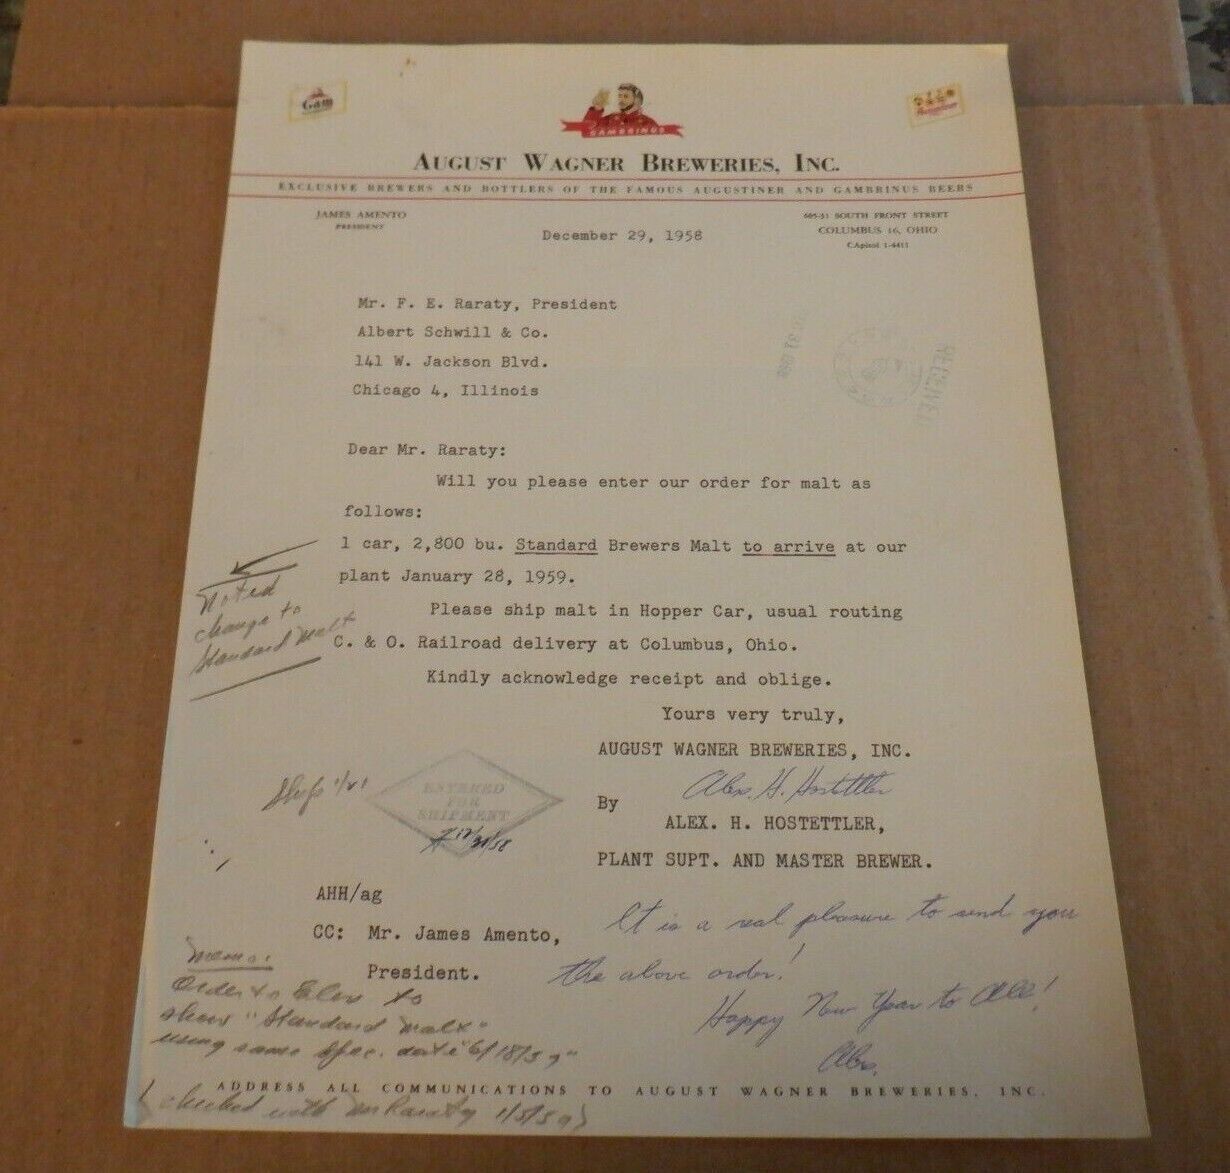 Gam
GAMBRINUS
Augustiner
AUGUST WAGNER BREWERIES, INC.
EXCLUSIVE BREWERS AND BOTTLERS OF THE FAMOUS AUGUSTINER AND GAMBRINUS BEERS
JAMES AMENTO
PRESIDENT
605-31 SOUTH FRONT STREET
COLUMBUS 16, OHIO
CApitol 1-4411
December 29, 1958
Mr. F. E. Raraty, President
Albert Schwill & Co.
141 W. Jackson Blvd.
Chicago 4, Illinois
RECEIVED
Dear Mr. Raraty:
Will you please enter our order for malt as
follows:
1 car, 2,800 bu. Standard Brewers Malt to arrive at our
plant January 28, 1959.
Noted
change to
Standard Malt
Please ship malt in Hopper Car, usual routing
C. & O. Railroad delivery at Columbus, Ohio.
Kindly acknowledge receipt and oblige.
Yours very truly,
AUGUST WAGNER BREWERIES, INC.
Ship 1/21
ENTERED
FOR
SHIPMENT
12/31/58
Alex. H. Hostettler
By
ALEX. H. HOSTETTLER,
PLANT SUPT. AND MASTER BREWER.
AHH/ag
CC: Mr. James Amento,
President.
It is a real pleasure to send you
the above order!
Happy New Year to All!
Alex.
Memo:
Order to
show "Standard Malt"
using same spec. date
ADDRESS ALL COMMUNICATIONS TO AUGUST WAGNER BREWERIES, INC.
checked with Mr Raraty 1/5/59